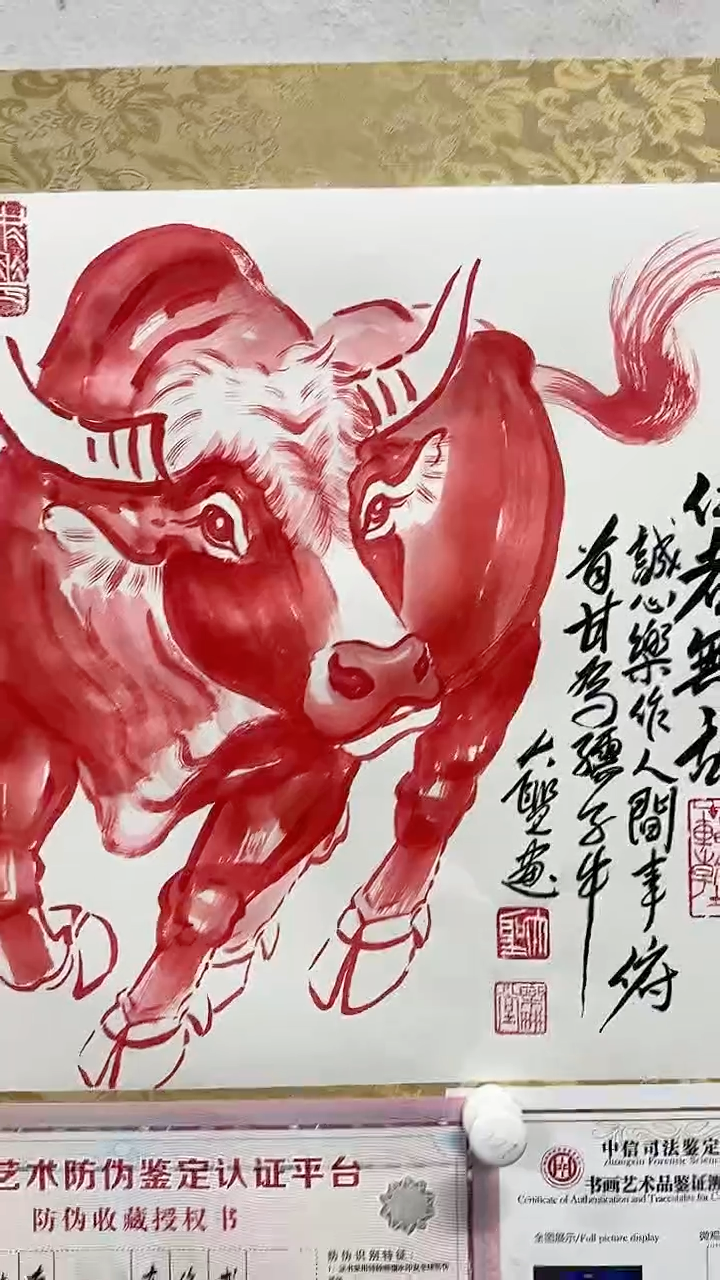 仁者無敌
誠心樂作人間事 俯
首甘為孺子牛
大聖畫
艺术防伪鉴定认证平台
防伪收藏授权书
防伪识别特征：
中信司法鉴定
Zhongxin Forensic Scien
书画艺术品鉴证溯
Certificate of Authentication and Traceability for C
全图展示/Full picture display
微观